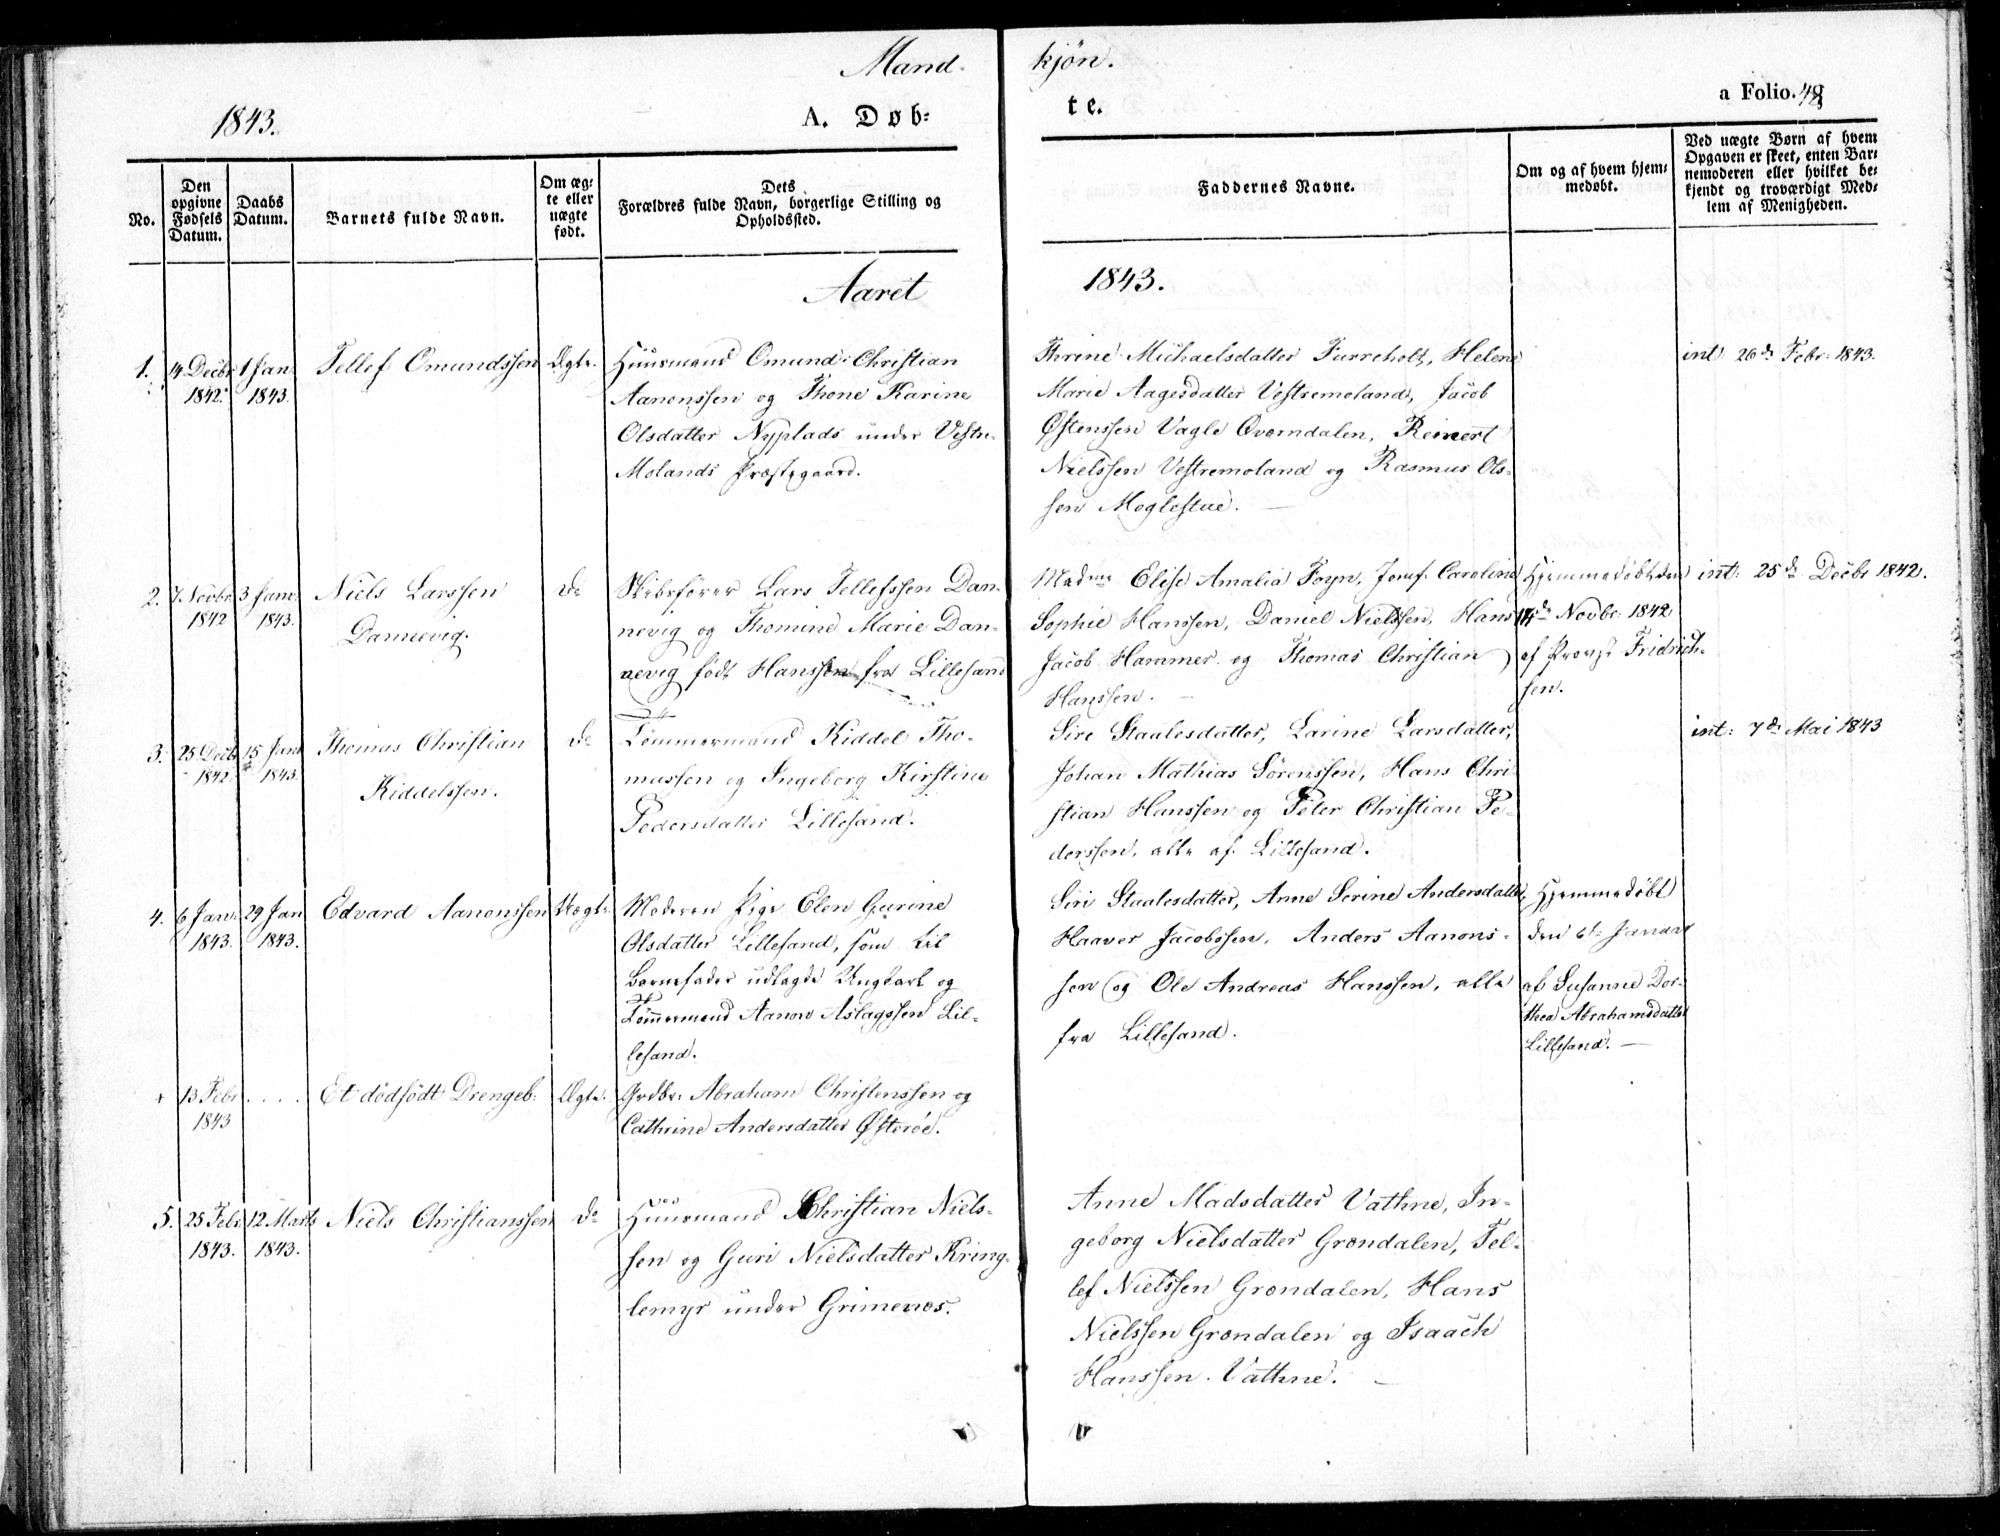 Mand-
kjön.
1843.
A. Døb-
te.
a Folio. 48
No.
Den
opgivne
Fødsels
Datum.
Daabs
Datum.
Barnets fulde Navn.
Om æg-
te eller
uægte
født.
Dets
Forældres fulde Navn, borgerlige Stilling og
Opholdssted.
Faddernes Navne.
Om og af hvem hjem-
medøbt.
Ved uægte Børn af hvem
Opgaven er skeet, enten Bar-
nemoderen eller hvilket be-
kjendt og troværdigt Med-
lem af Menigheden.
Aaret
1843.
1.
14 Decbr
1842.
1 Jan:
1843.
Tellef Omundssen
Ægte.
Huusmand Omund Christian
Aanonssen og Thone Karine
Olsdatter Nyplads under Vestre-
Molands Præstegaard.
Thrine Michaelsdatter Furreholt, Helene
Marie Aagesdatter Vestremoland, Jacob
Østenssen Vagle Overndalen, Reinert
Nielssen Vestremoland og Rasmus Ols-
sen Moglestue.
int: 26de Febr: 1843.
2.
7 Novbr
1842
3 Jan:
1843.
Niels Larssen
Dannevig.
do
Skibsfører Lars Tellefssen Dan-
nevig og Thomine Marie Dan-
nevig født Hanssen fra Lillesand
Madme Elise Amalia Foyn, Jomf. Caroline
Sophie Hanssen, Daniel Nielssen, Hans
Jacob Hammer og Thomas Christian
Hanssen.
Hjemmedøbt den
17de Novbr: 1842
af Provst Fridrich-
sen.
int: 25de Decbr 1842.
3.
25 Decbr
1842.
15 Jan:
1843.
Thomas Christian
Kiddelssen.
do
Tømmermand Kiddel Tho-
massen og Ingeborg Kirstine
Pedersdatter Lillesand.
Sire Staalesdatter, Larine Larsdatter,
Johan Mathias Sørenssen, Hans Chri-
stian Hanssen og Peter Christian Pe-
derssen, alle af Lillesand.
int: 7de Mai 1843
4.
6 Jan:
1843.
29 Jan
1843.
Edvard Aanonssen
Uægte.
Moderen Pige Elen Gurine
Olsdatter Lillesand, som til
Barnefader udlagde Ungkarl og
Tømmermand Aanon Aslagssen Lil-
lesand.
Siri Staalesdatter, Anne Serine Andersdatter,
Haaver Jacobssen, Anders Aanons-
sen og Ole Andreas Hanssen, alle
fra Lillesand.
Hjemmedøbt
den 6te Januar
af Susanne Dor-
thea Abrahamsdatter
Lillesand. —
+
13 Febr
1843
. . . .
Et dödfödt Drengeb:
Ægte.
Grdbr: Abraham Christenssen og
Cathrine Andersdatter Østerøe.
5.
25 Febr
1843.
12 Marts
1843.
Niels Christianssen
do
Huusmand Christian Niels-
sen og Guri Nielsdatter Kring-
lemyr under Grimenes.
Anne Madsdatter Vathne, In-
geborg Nielsdatter Grøndalen, Tel-
lef Nielssen Grøndalen, Hans
Nielssen Grøndalen og Isaach
Hanssen Vathne. —